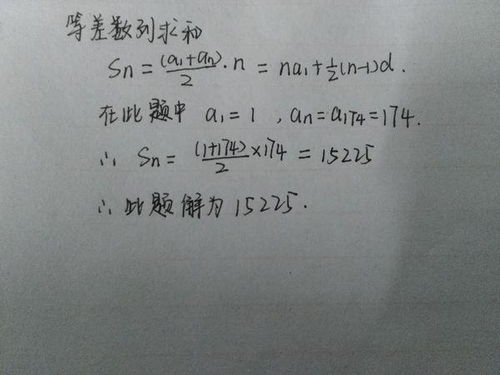 等差数列求和
Sn = (a₁+an)/2 · n = na₁ + ½(n-1)d .
在此题中 a₁ = 1 , an = a₁₇₄ = 174 .
∴ Sn = (1+174)/2 × 174 = 15225
∴ 此题解为 15225 .